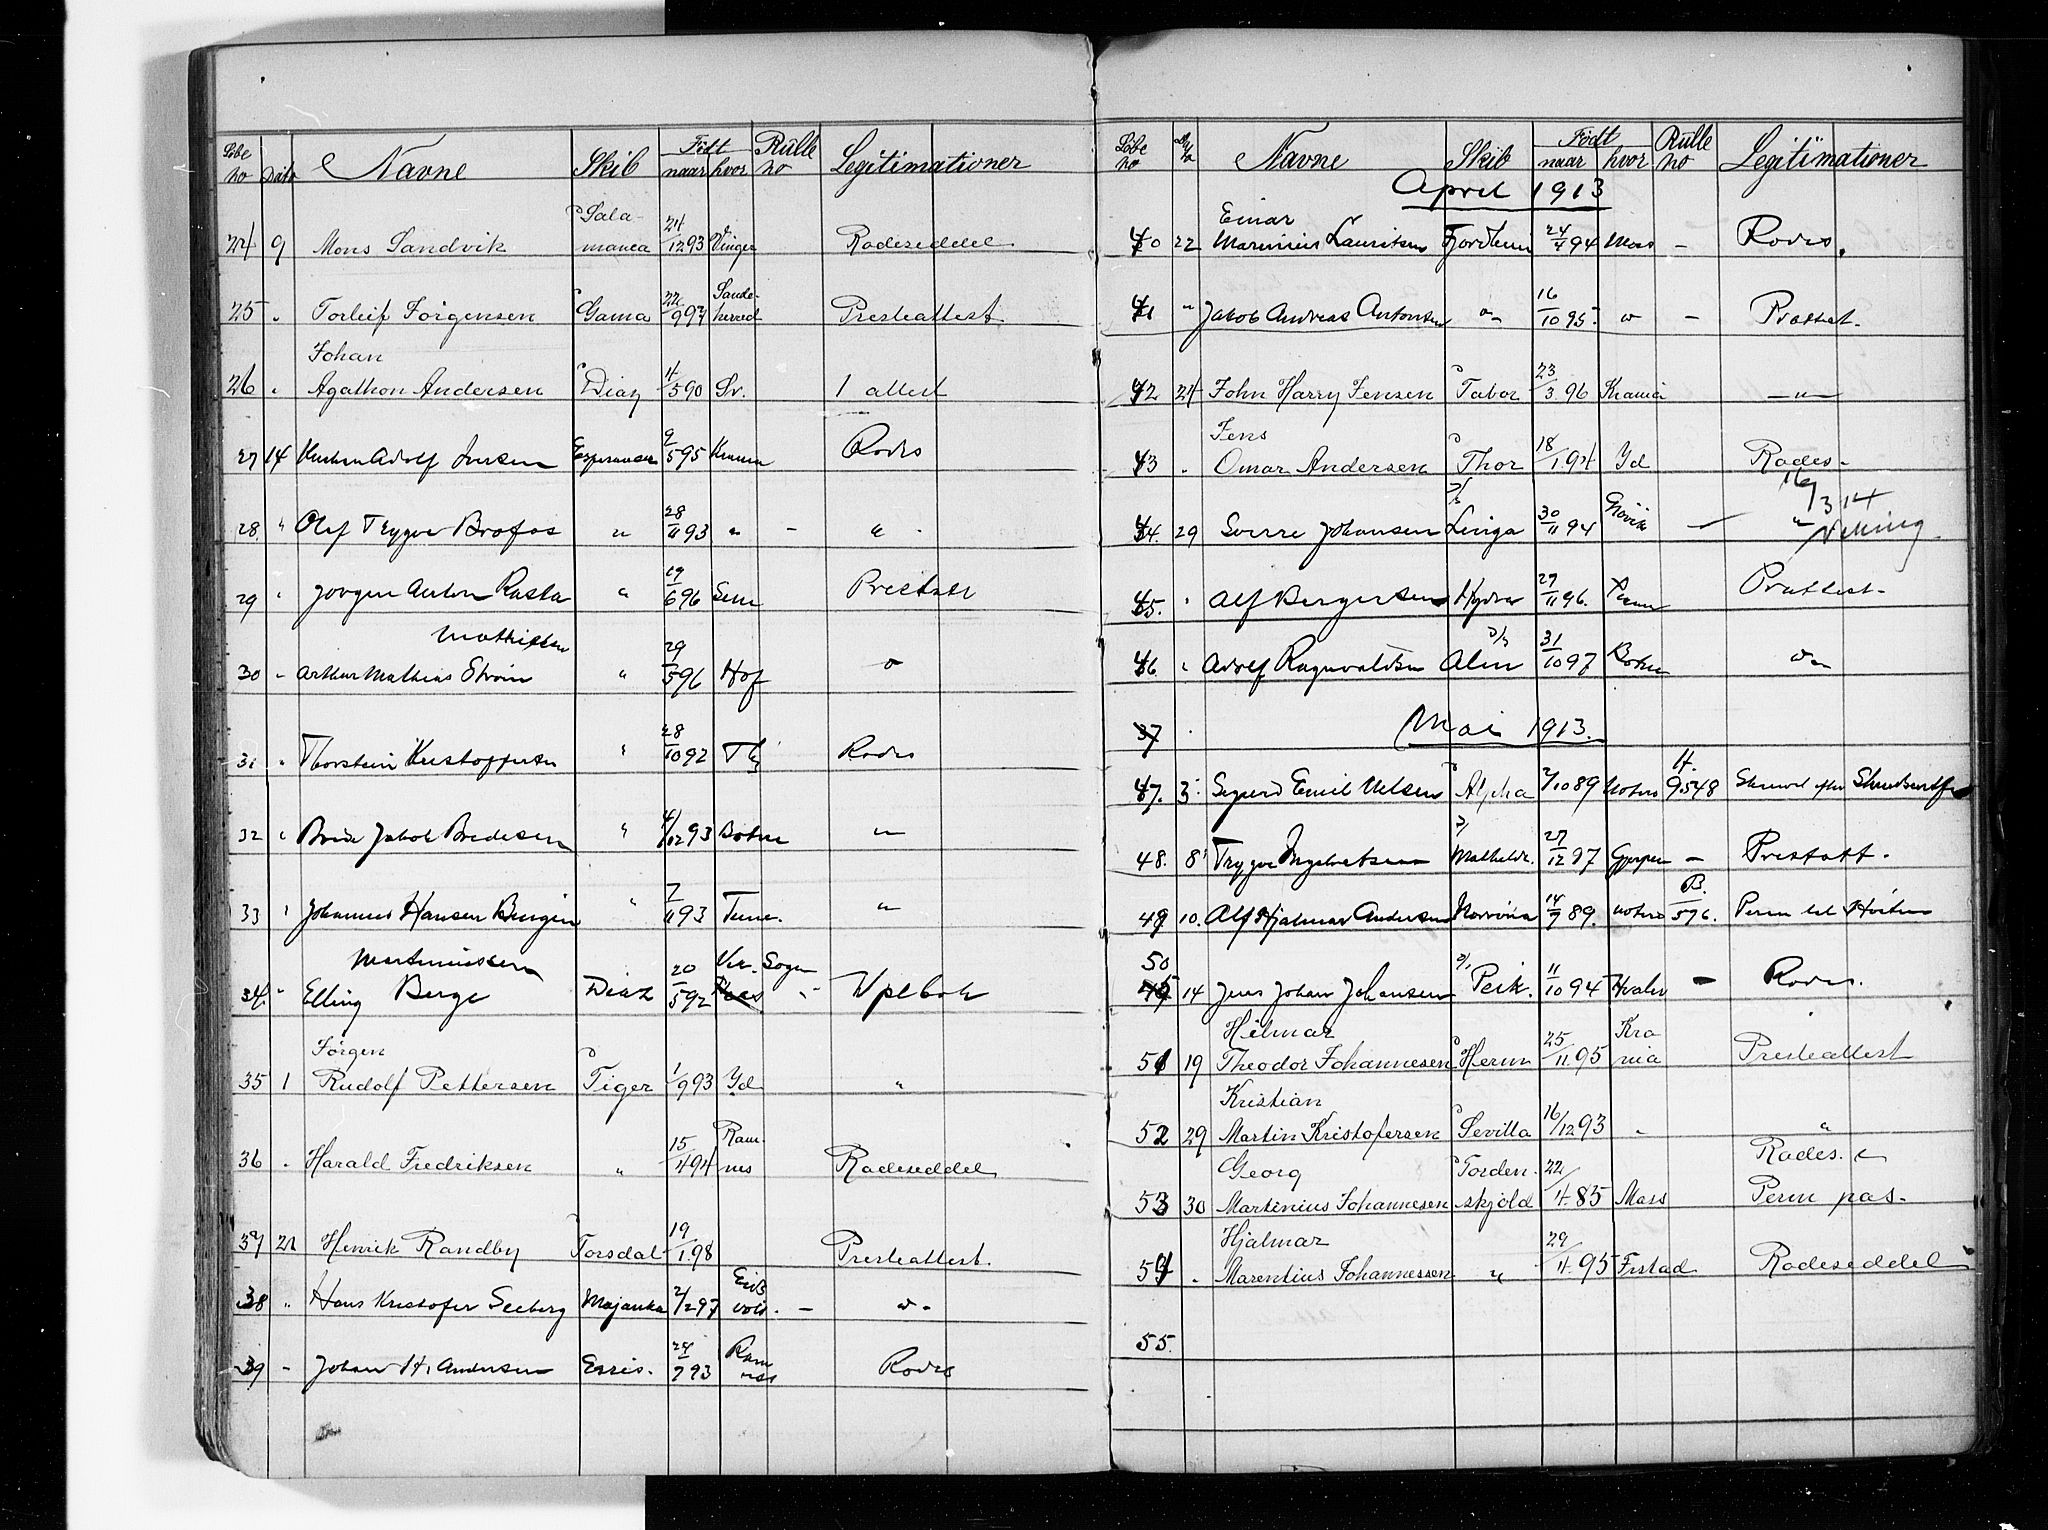 Løbe no Dato Navne Skib Født naar hvor Rulle no Legitimationer
24 9 Mons Sandvik Salamanca 24/12 93 Vinger Rodeseddel
25 " Torleif Jørgensen Gama 22/9 97 Sandeherred Presteattest
Johan
26 " Agathon Andersen Diaz 11/5 90 Sv. 1 attest
27 14 Adolf Esperanza 9/5 95 Rodes
28 " Olef Trygve Brofos " 28/11 93 " - "
29 " Jørgen Anton Rasta " 19/6 96 Sem Prestatt
Mathisen
30 " Arthur Mathias Strøm " 29/5 96 Hof "
31 " Thorstein Kristoffersen " 28/10 92 Rodes
32 " Brede Jakob Bredesen " 4/12 93 Botne "
33 " Johannes Hansen Bingen " 7/11 93 Tune. "
Martiniussen
34 " Elling Berge Diaz 20/5 92 Sogn "
Jørgen
35 1 Rudolf Pettersen Tiger 1/9 93 Id "
36 " Harald Fredriksen " 15/4 94 Ramnes Rodeseddel
37 21 Henrik Randby Torsdal 19/1 98 Presteattest.
38 " Hans Kristofer Seeberg Majanka 2/2 97 Eidsvold. - "
39 " Johan H. Andersen Esris. 24/7 93 Ramnes Rodes
Løbe no Navne Skib Født naar hvor Rulle no Legitimationer
April 1913
Einar
40 22 Marinius Lauritsen Fjordheim 24/4 94 Moss - Rodes.
41 " Jakob Andreas Antonsen " 16/10 95 " - Prattest.
42 24 John Harry Jensen Tabor 23/3 96 Krania "
Jens
43 " Omar Andersen Thor 18/1 94 Id Rodes.
16/3 14
44. 29 Sverre Johansen Linga 30/11 94 Gjøvik "
45. " Alf Bergersen Hydra 27/11 96. Prattest.
46 " Adolf Ragnvaldsen Alin 31/10 97 Botne "
37 Mai 1913.
47. 3. Sigurd Emil Nelsen Alpha 7/10 89 Noterø H. 9548
48. 8 Trygve Ingebretsen Mathilde. 27/12 97 Gjerpen - Prestatt.
49 10. Alf Hjalmar Andersen 14/9 89. Noterø B. 596. Perm til Horten
50 14 Jens Johan Johansen Peik. 11/10 94 Hvaler - Rodes.
Hilmar
51 19 Theodor Johannesen Herm 25/11 95 Krania Presteattest
Kristian
52 29 Martin Kristofersen Sevilla 16/12 93 " "
Georg Rodes.
53 30 Martinius Johannesen Tordenskjold 22/4 85 Moss Perm pas.
Hjalmar
54 " Marentius Johannessen " 29/4 95 Frstad Rodeseddel
55.